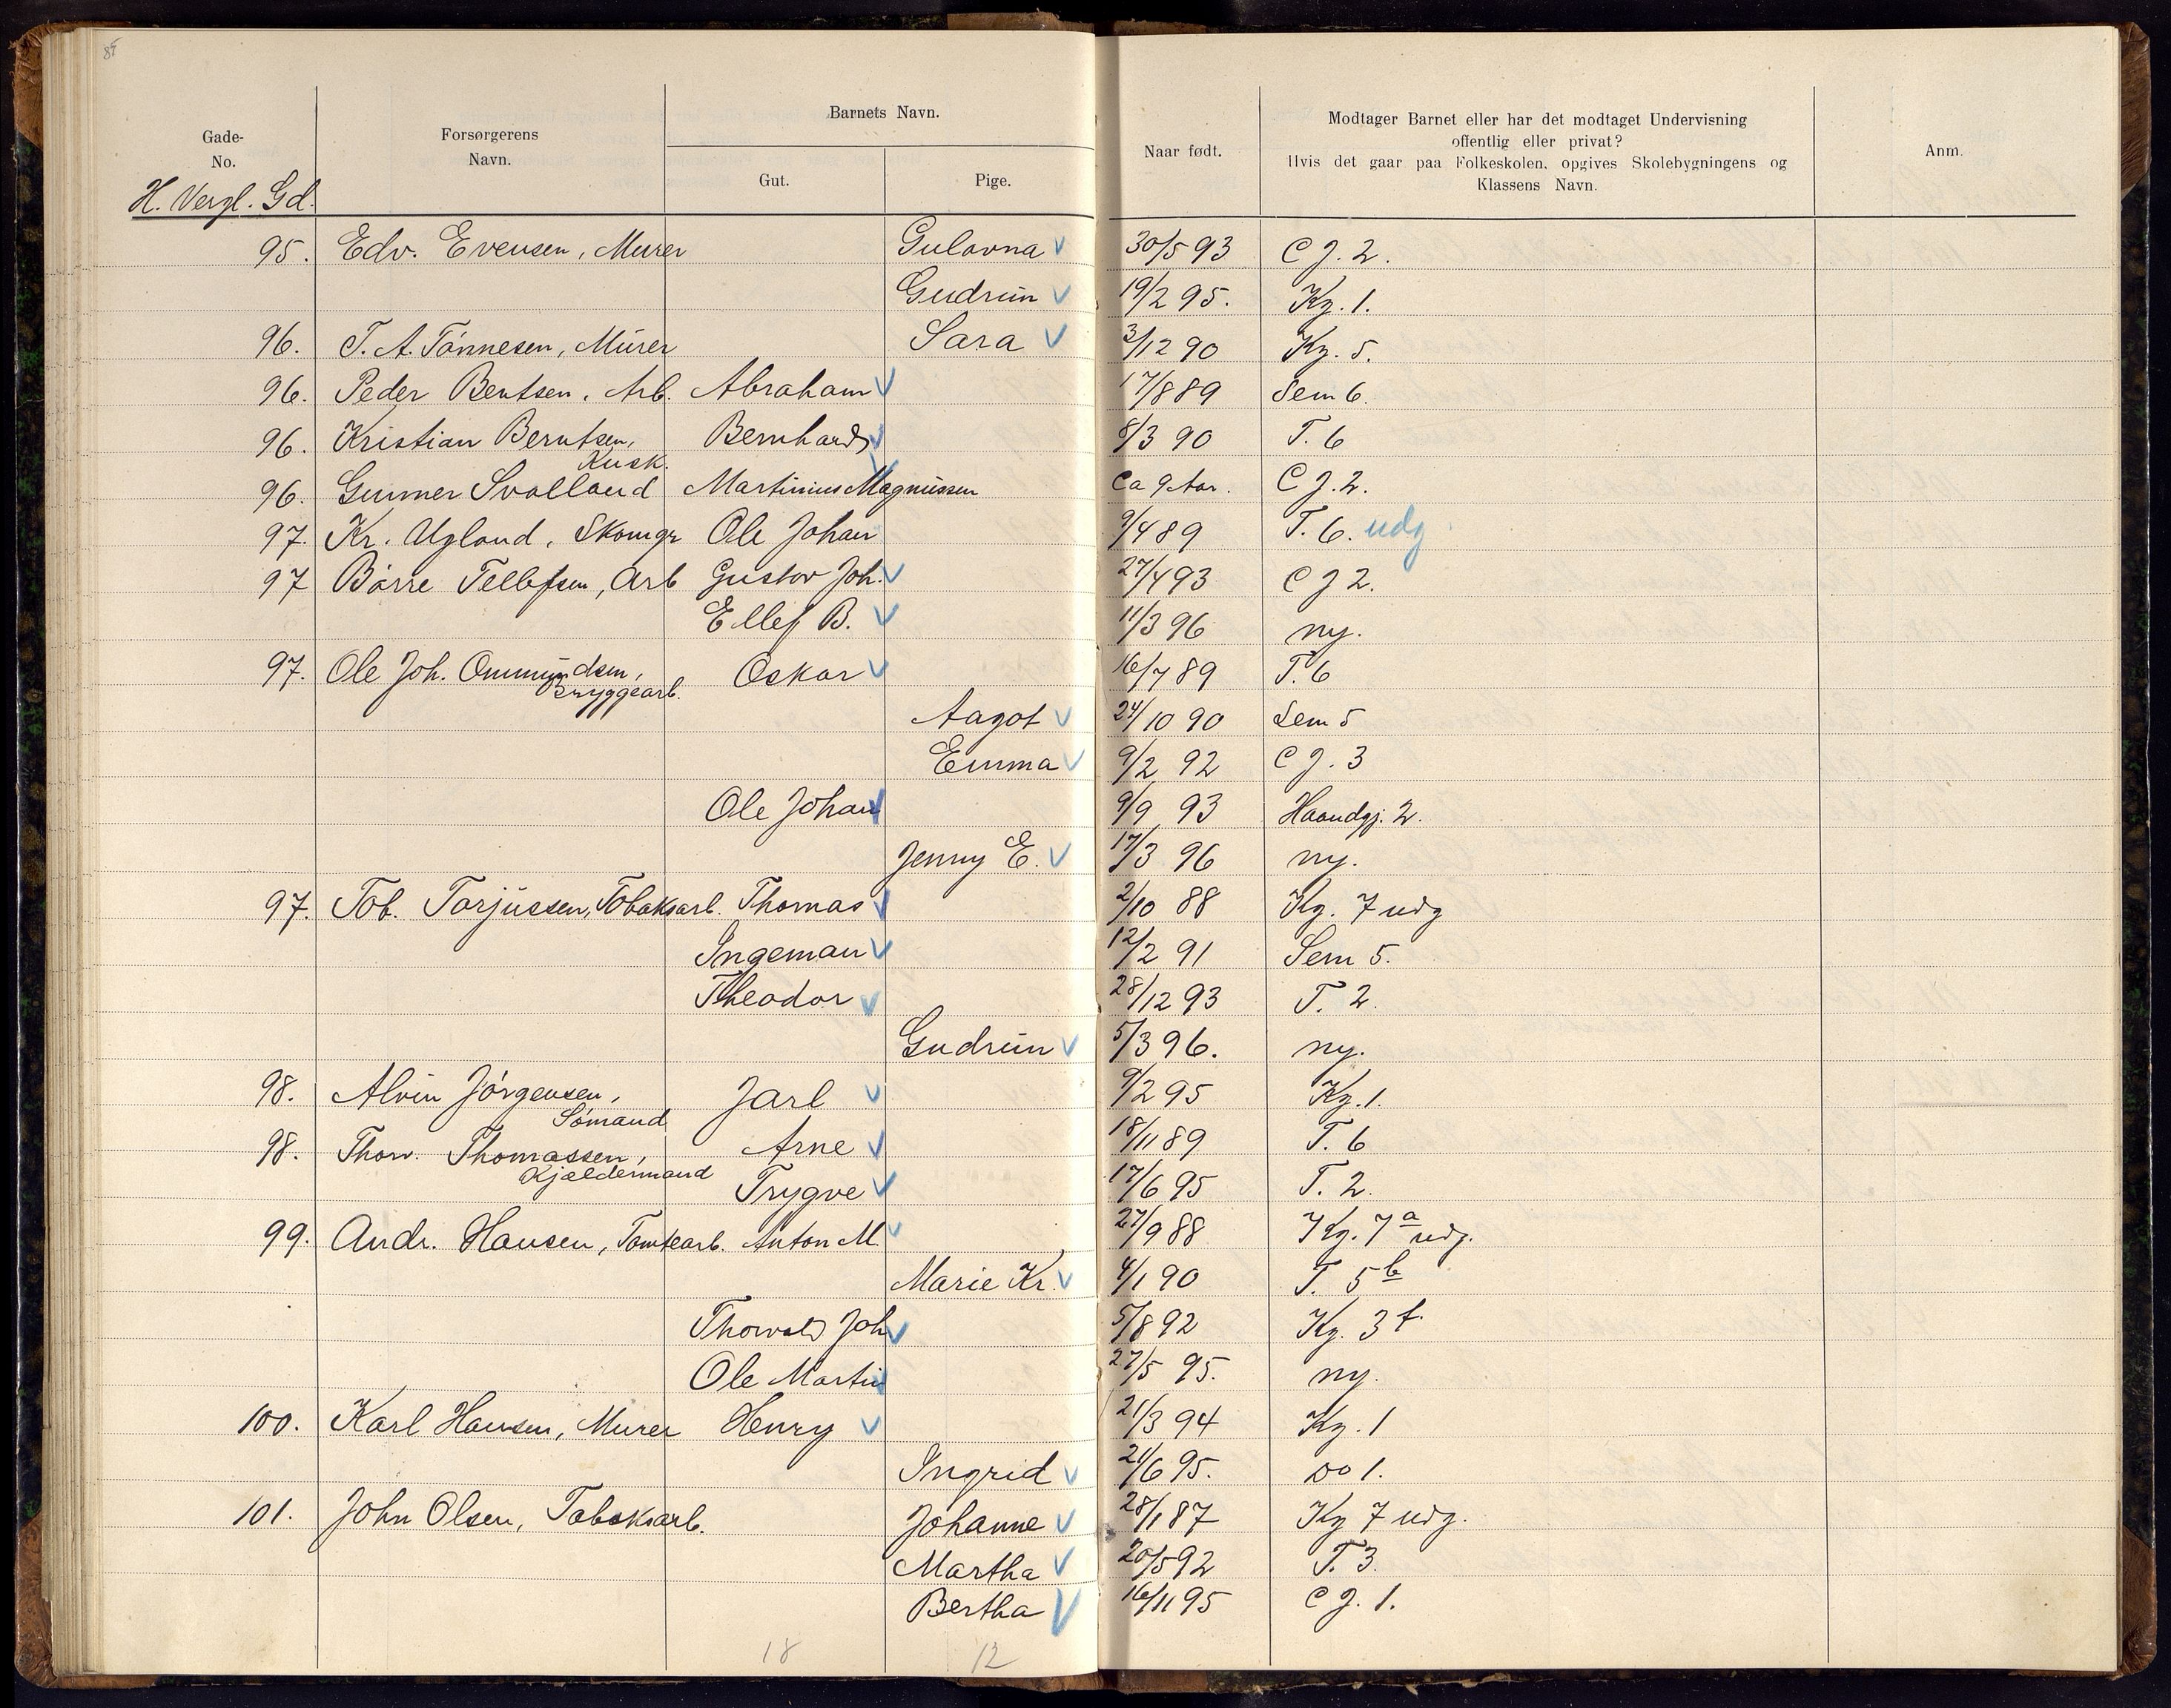 85
Gade-
No.
Forsørgerens
Navn.
Barnets Navn.
Gut.
Pige.
Naar født.
Modtager Barnet eller har det modtaget Undervisning
offentlig eller privat?
Hvis det gaar paa Folkeskolen, opgives Skolebygningens og
Klassens Navn.
Anm.
H. Vergl. Gd.
95. Edv. Evensen, Murer Gulovna 30/5 93 C J. 2.
Gudrun 19/2 95. Kg. 1.
96. T. A. Tönnesen, Murer Sara 3/12 90 Kg. 5.
96. Peder Bentsen, Arb. Abraham 17/8 89 Sem 6.
96. Kristian Berntsen, Bernhard 8/3 90 T. 6
Kusk.
96. Gunner Svalland Martinius Magnussen Ca 9 Aar. C J. 2.
97. Kr. Ugland, Skomgr Ole Johan 9/4 89 T. 6. udg
97 Börre Tellefsen, Arb Gustav Joh. 27/4 93 C J 2.
Ellef B. 11/3 96 ny.
97. Ole Joh. Ommundsen, Oskar 16/7 89 T. 6
Bryggearb.
Aagot 24/10 90 Sem 5
Emma 9/2 92 C J. 3
Ole Johan 9/9 93 Haandgj. 2.
Jenny E. 17/3 96 ny.
97. Tob. Torjussen, Tobaksarb. Thomas 2/10 88 Kg. 7 udg
Ingeman 12/2 91 Sem 5.
Theodor 28/12 93 T. 2.
Gudrun 5/3 96. ny.
98. Alvin Jörgensen, Jarl 9/2 95 Kg. 1.
Sömand
98. Thorv. Thomassen, Arne 18/11 89 T. 6
Kjeldermand Trygve 17/6 95 T. 2.
99. Andr. Hansen, Tomtearb. Anton M. 27/9 88 Kg. 7 a udg.
Marie Kr. 4/1 90 T. 5 b
Thorvald Joh 5/8 92 Kg. 3 f.
Ole Martin 27/5 95. ny.
100. Karl Hansen, Murer Henry 21/3 94 Kg. 1
Ingrid 21/6 95. Do 1.
101. John Olsen, Tobaksarb. Johanne 28/1 87 Kg 7 udg.
Martha 20/5 92 T. 3.
Bertha 16/11 95 C J. 1.
18 12